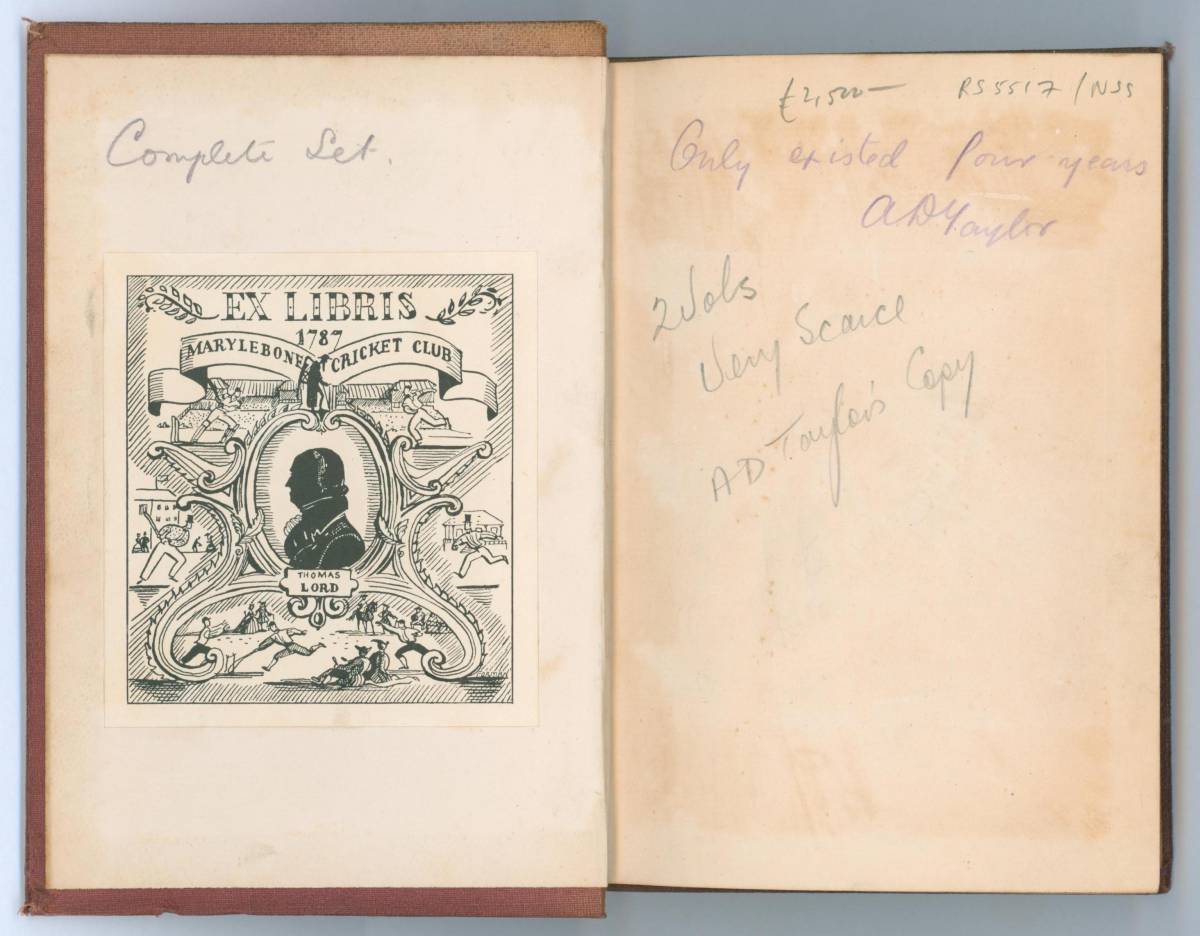 Complete Set.
EX LIBRIS
1787
MARYLEBONE CRICKET CLUB
THOMAS
LORD
£2,500— RS5517/NSS
Only existed four years
A D Taylor
2 Vols
Very Scarce
A D Taylor's Copy